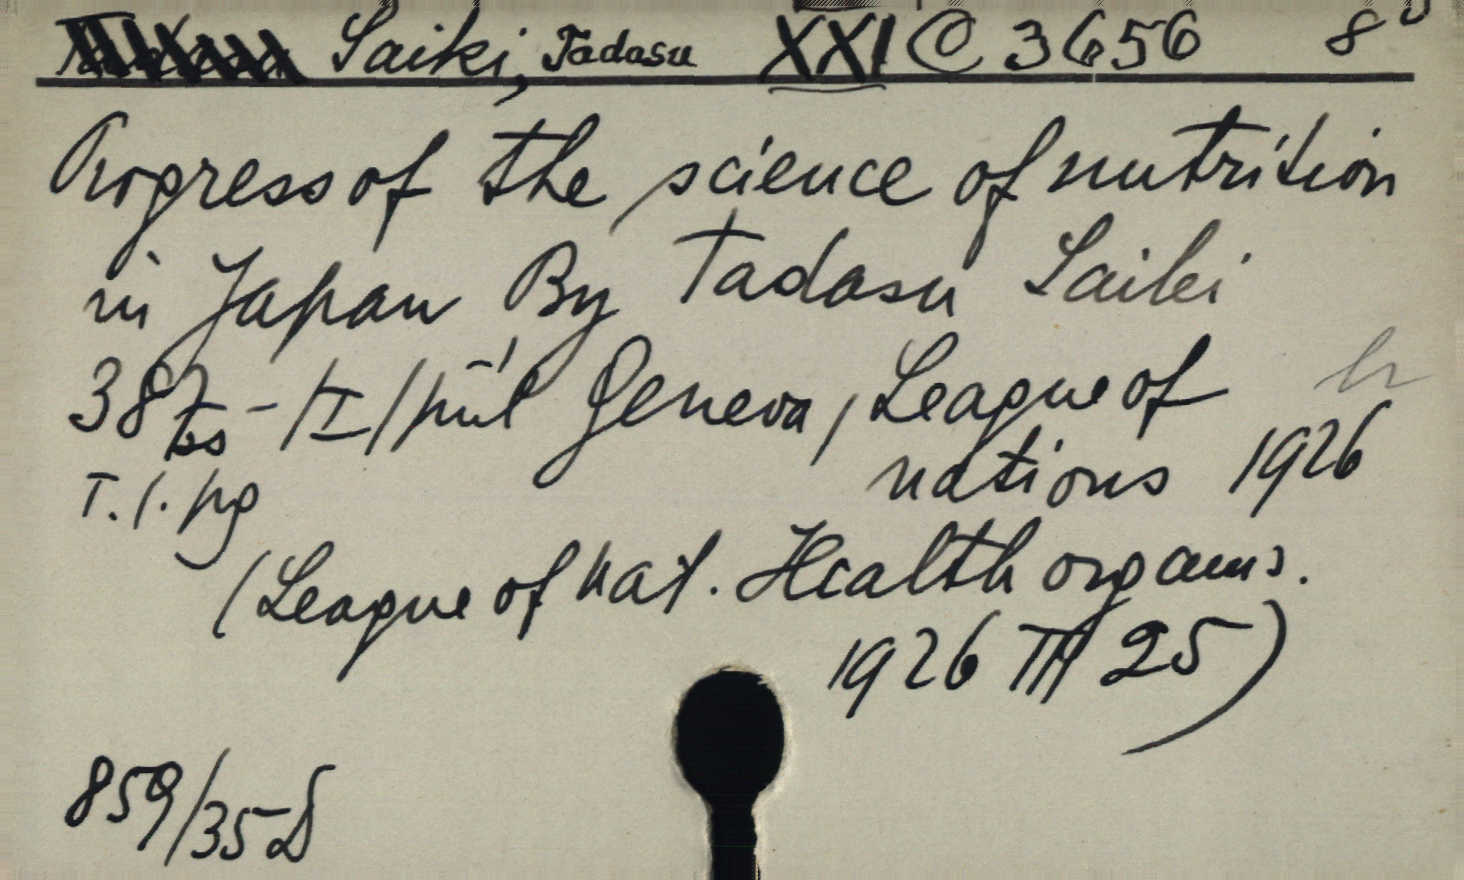 Saiki, Tadasu XXI C 3656 8°
Progress of the science of nutrition
in Japan By Tadasu Saiki
Geneva, League of
nations 1926
T. l. pg
(League of nat. Health organis.
1926 III 25)
859/35 D